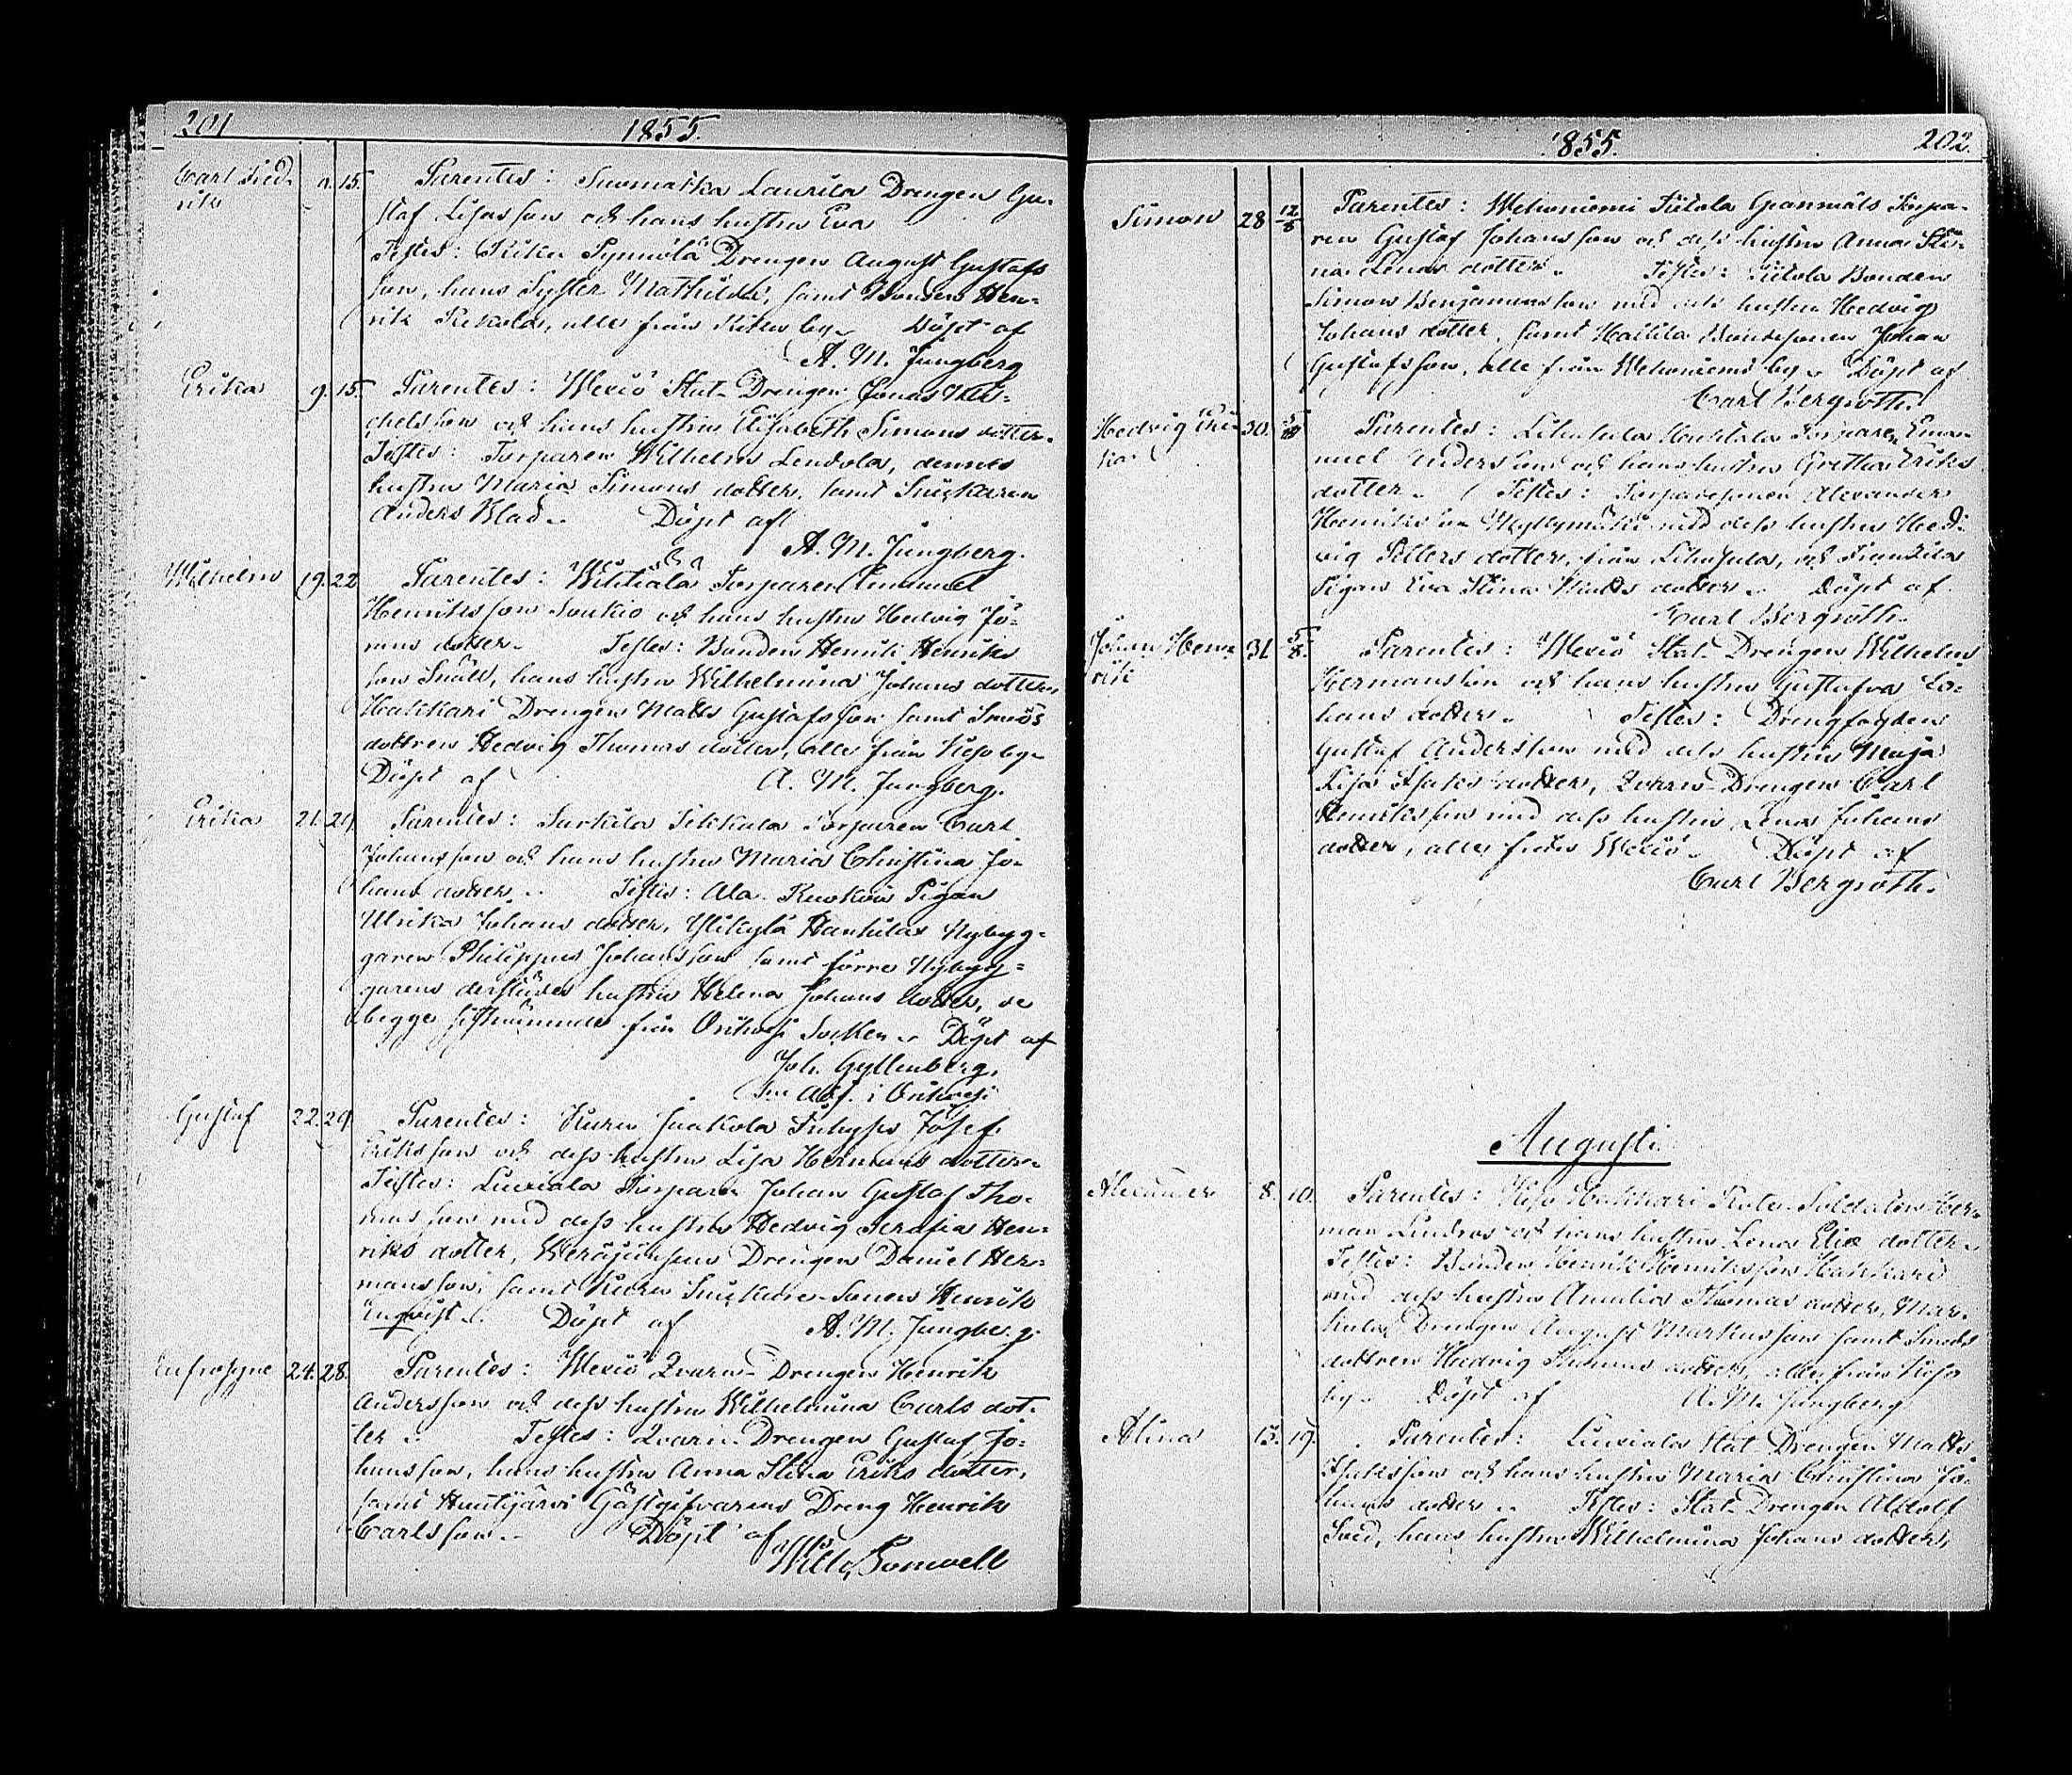 201
1855.
Carl Fred-
rik
15.
Parentes: Suomatka Laurila Drengen Gu-
staf Lisasson och hans hustru Eva
Testes: Pynnölä Drengen August Gustafs
son, hans Syster Mathilda, samt Bonden Hen-
rik alla från by. Döpt af
A. M. Jungberg
Erika 9. 15.
Parentes: Wexiö Stat-Drengen Jonas Mi-
chelsson och hans hustru Elisabeth Simons dotter.
Testes: Torparen Wilhelm Lendola, dennes
hustru Maria Simons dotter, samt Snickaren
Anders Blad. Döpt af
A. M. Jungberg.
Wilhelm 19. 22
Parentes: Torparen Emanuel
Henriksson Soukio och hans hustru Hedvig Jo-
hans dotter. Testes: Bonden Henrik Henriks
son Snäll, hans hustru Wilhelmina Johans dotter,
Hakkari Drengen Matts Gustafsson samt Smeds
dottren Hedvig Thomas dotter, alla från Keso by.
Döpt af A. M. Jungberg.
Erika 21. 29.
Parentes: Surkila Torparen Carl
Johansson och hans hustru Maria Christina Jo-
hans dotter. Testes: Ala Pigan
Ulrika Johans dotter, Ylikylä Nybyg-
garen Philippus Johansson samt förre Nybyg-
garens derstädes hustru Helena Johans dotter, de
begge sistnämnde från Orihvesi Socken. Döpt af
Joh. Gyllenberg,
i Orihvesi
Gustaf 22. 29.
Parentes: Kuru Jaakola Inhyses Josef
Eriksson och dess hustru Lisa Hermans dotter.
Testes: Liuxiala Torparen Johan Gustaf Tho-
masson med dess hustru Hedvig Serafia Hen-
riks dotter, Drengen Daniel Her-
mansson, samt Kuru Snickare-Sonen Henrik
Engqvist. Döpt af A. M. Jungberg.
Eufrosyne 24. 28.
Parentes: Wexiö Qvarn-Drengen Henrik
Andersson och dess hustru Wilhelmina Carls dot-
ter. Testes: Qvarn-Drengen Gustaf Jo-
hansson, hans hustru Anna Stina Eriks dotter,
samt Huutijärvi Gästgifvarens Dreng Henrik
Carlsson. Döpt af
Wilh. Bonwell
1855.
202.
Simon 28 12/8
Parentes: Wehoniemi Torpa-
ren Gustaf Johansson och dess hustru Anna Sti-
na dotter. Testes: Bonden
Simon Benjaminsson med dess hustru Hedvig
Johans dotter, samt Mattila Bondesonen Johan
Gustafsson, alla från Wehoniemi by. Döpt af
Carl Bergroth.
Hedvig Eri- 30.
ka
Parentes: Torparen Eman-
uel Andersson och hans hustru Gretha Eriks
dotter. Testes: Torparesonen Alexander
Henriksson Myllymäki med dess hustru Hed-
vig Petters dotter, från och
Pigan Eva Stina Matts dotter. Döpt af
Carl Bergroth.
Johan Hen- 31. 5/8.
rik
Parentes: Wexiö Stat-Drengen Wilhelm
Hermansson och hans hustru Gustafva Jo-
hans dotter. Testes: Drengfogden
Gustaf Andersson med dess hustru Maja
Lisa Isaks dotter, Qvarn-Drengen Carl
Henriksson med dess hustru Lena Johans
dotter, alla från Wexiö. Döpt af
Carl Bergroth.
Augusti.
Alexander 8. 10.
Parentes: Keso Hakkari Rote-Soldaten Her-
man Lindros och hans hustru Lena Eliæ dotter.
Testes: Bonden Henrik Henriksson Hakkari
med dess hustru Amalia Thomas dotter, Mar-
kula Drengen August Markusson samt Smeds
dottren Hedvig Thomas dotter, alla från Keso
by. Döpt af A. M. Jungberg
Alina 15. 19.
Parentes: Liuxiala Stat-Drengen Matts
Isaksson och hans hustru Maria Christina Jo-
hans dotter. Testes: Stat-Drengen Adolf
hans hustru Wilhelmina Johans dotter,